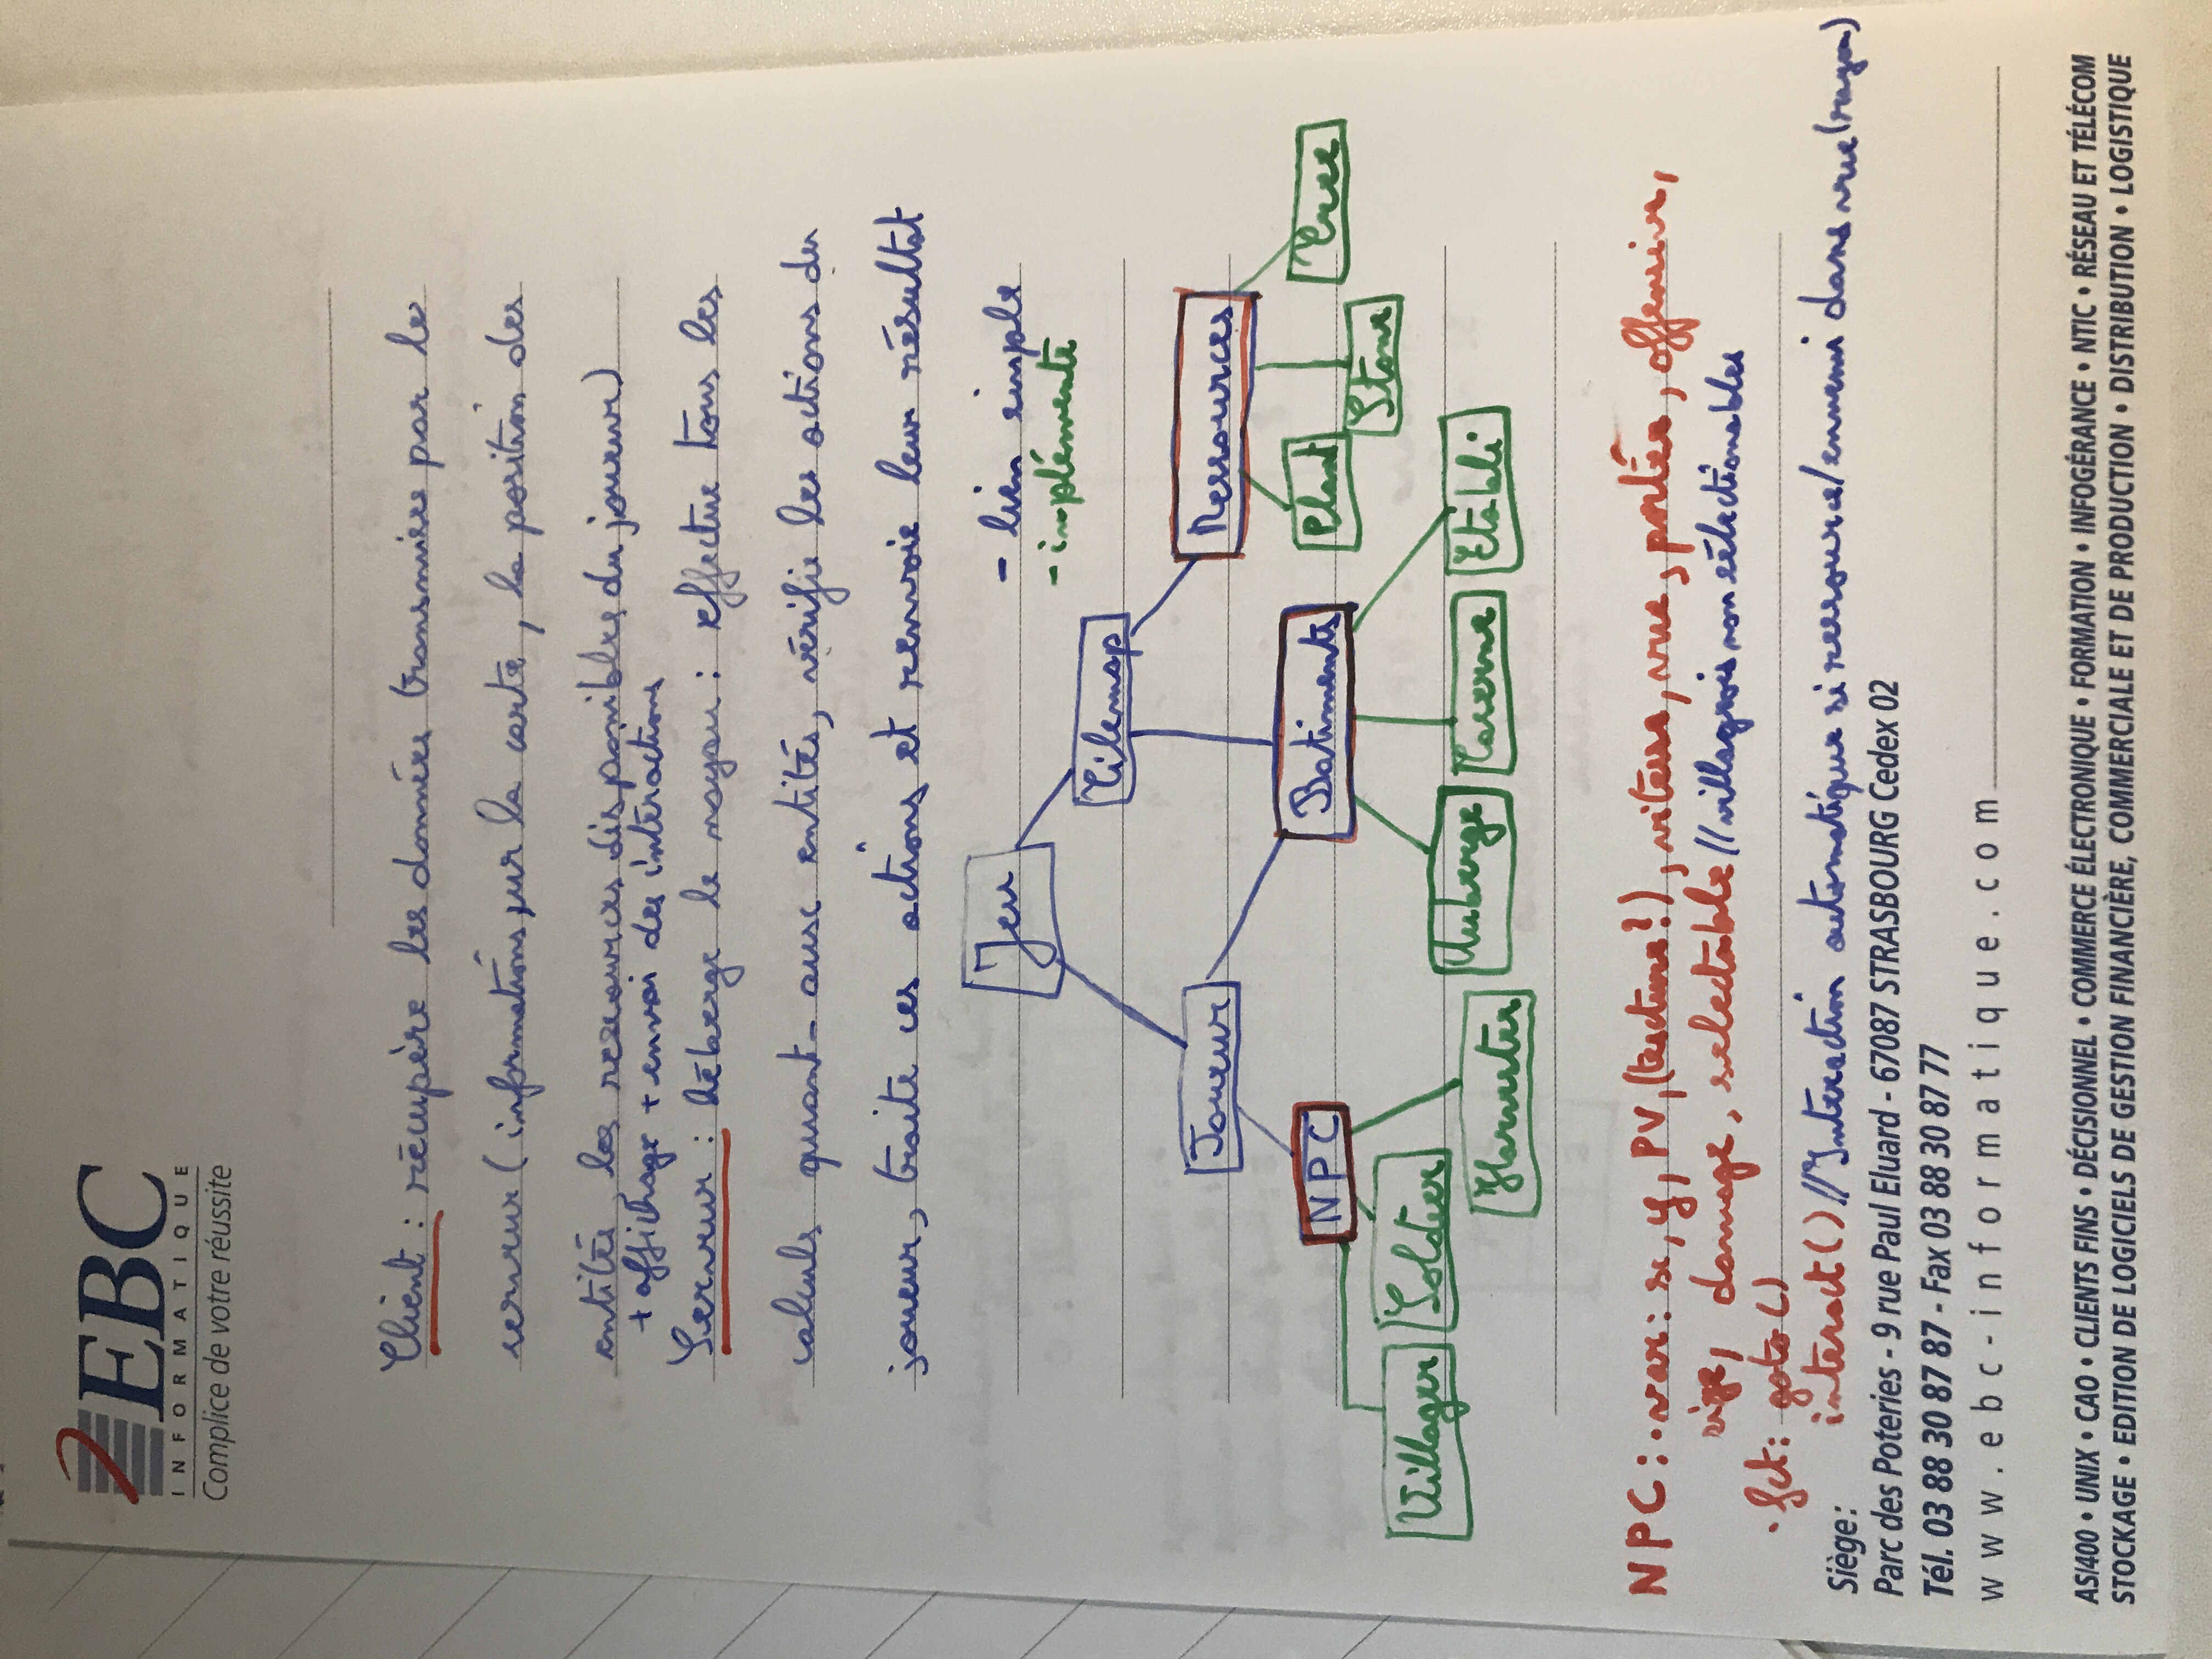 EBC
INFORMATIQUE
Complice de votre réussite
Client : récupère les données transmises par le
serveur (informations sur la carte, la position des
entités, les ressources disponibles du joueur)
+ affichage + envoi des intéractions
Serveur : héberge le noyau : effectue tous les
calculs quant aux entités, vérifie les actions du
joueur, traite ces actions et renvoie leur résultat
Jeu
- lien simple
- implémente
Tilemap
Joueur
Ressources
NPC
Batiments
Plant
Tree
Stone
Villager
Soldier
Harvester
Auberge
Caserne
Etabli
NPC : • var : x, y, PV, (texture?), vitesse, vue, portée, offensive,
size, damage, selectable // villageois non sélectionables
• fct : goto ()
interact () // Interaction automatique si ressource/ennemi dans vue (rayon)
Siège :
Parc des Poteries - 9 rue Paul Eluard - 67087 STRASBOURG Cedex 02
Tél. 03 88 30 87 87 - Fax 03 88 30 87 77
www.ebc-informatique.com
AS/400 • UNIX • CAO • CLIENTS FINS • DÉCISIONNEL • COMMERCE ÉLECTRONIQUE • FORMATION • INFOGÉRANCE • NTIC • RÉSEAU ET TÉLÉCOM
STOCKAGE • EDITION DE LOGICIELS DE GESTION FINANCIÈRE, COMMERCIALE ET DE PRODUCTION • DISTRIBUTION • LOGISTIQUE